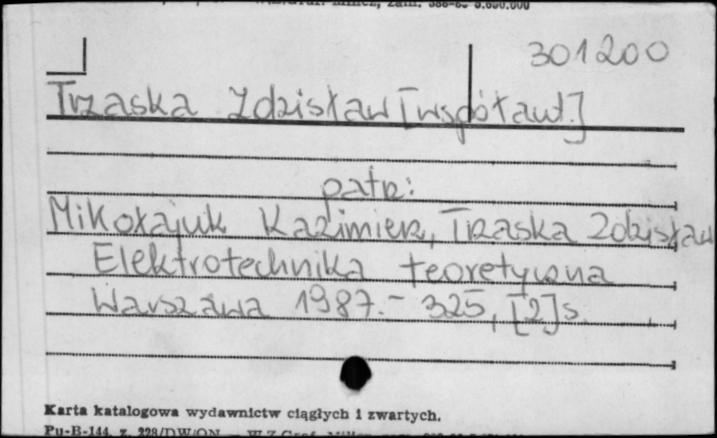 301200
Trzaska Zdzisław [współaut.]
patrz:
Mikołajuk Kazimierz, Trzaska Zdzisław
Elektrotechnika teoretyczna
Warszawa 1987.- 325, [2] s.
Karta katalogowa wydawnictw ciągłych i zwartych.
Pu-B-144, z. 228/DW/ON